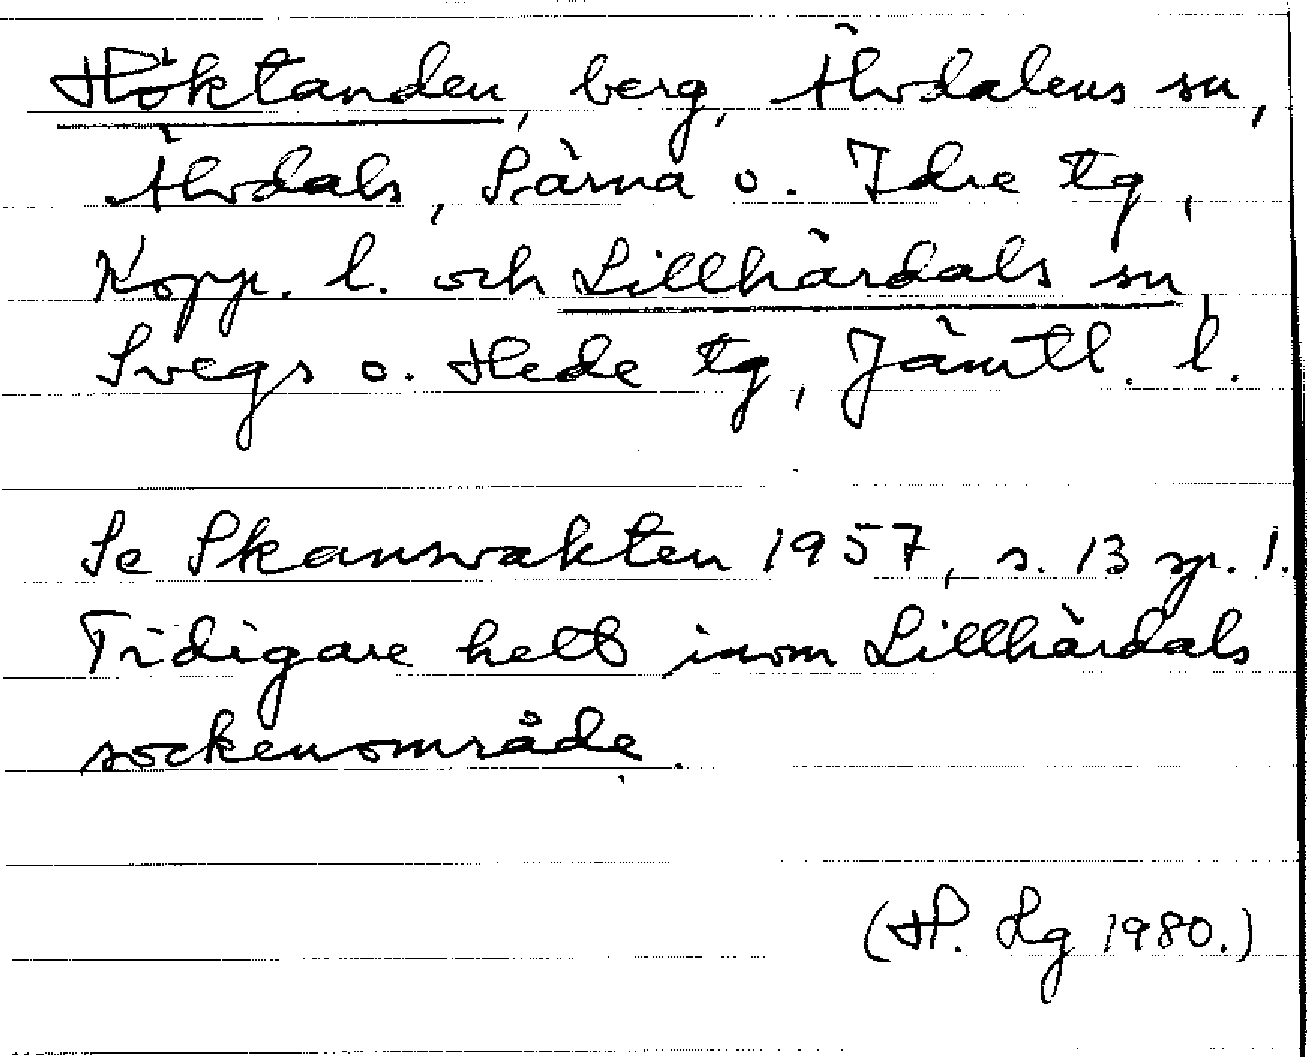 Höktanden, berg, Älvdalens sn,
Älvdals, Särna o. Idre tg,
Kopp. l. och Lillhärdals sn,
Svegs o. Hede tg, Jämtl. l.
Se Skansvakten 1957, s. 13 sp. 1.
Tidigare helt inom Lillhärdals
sockenområde.
(H. Lg 1980.)